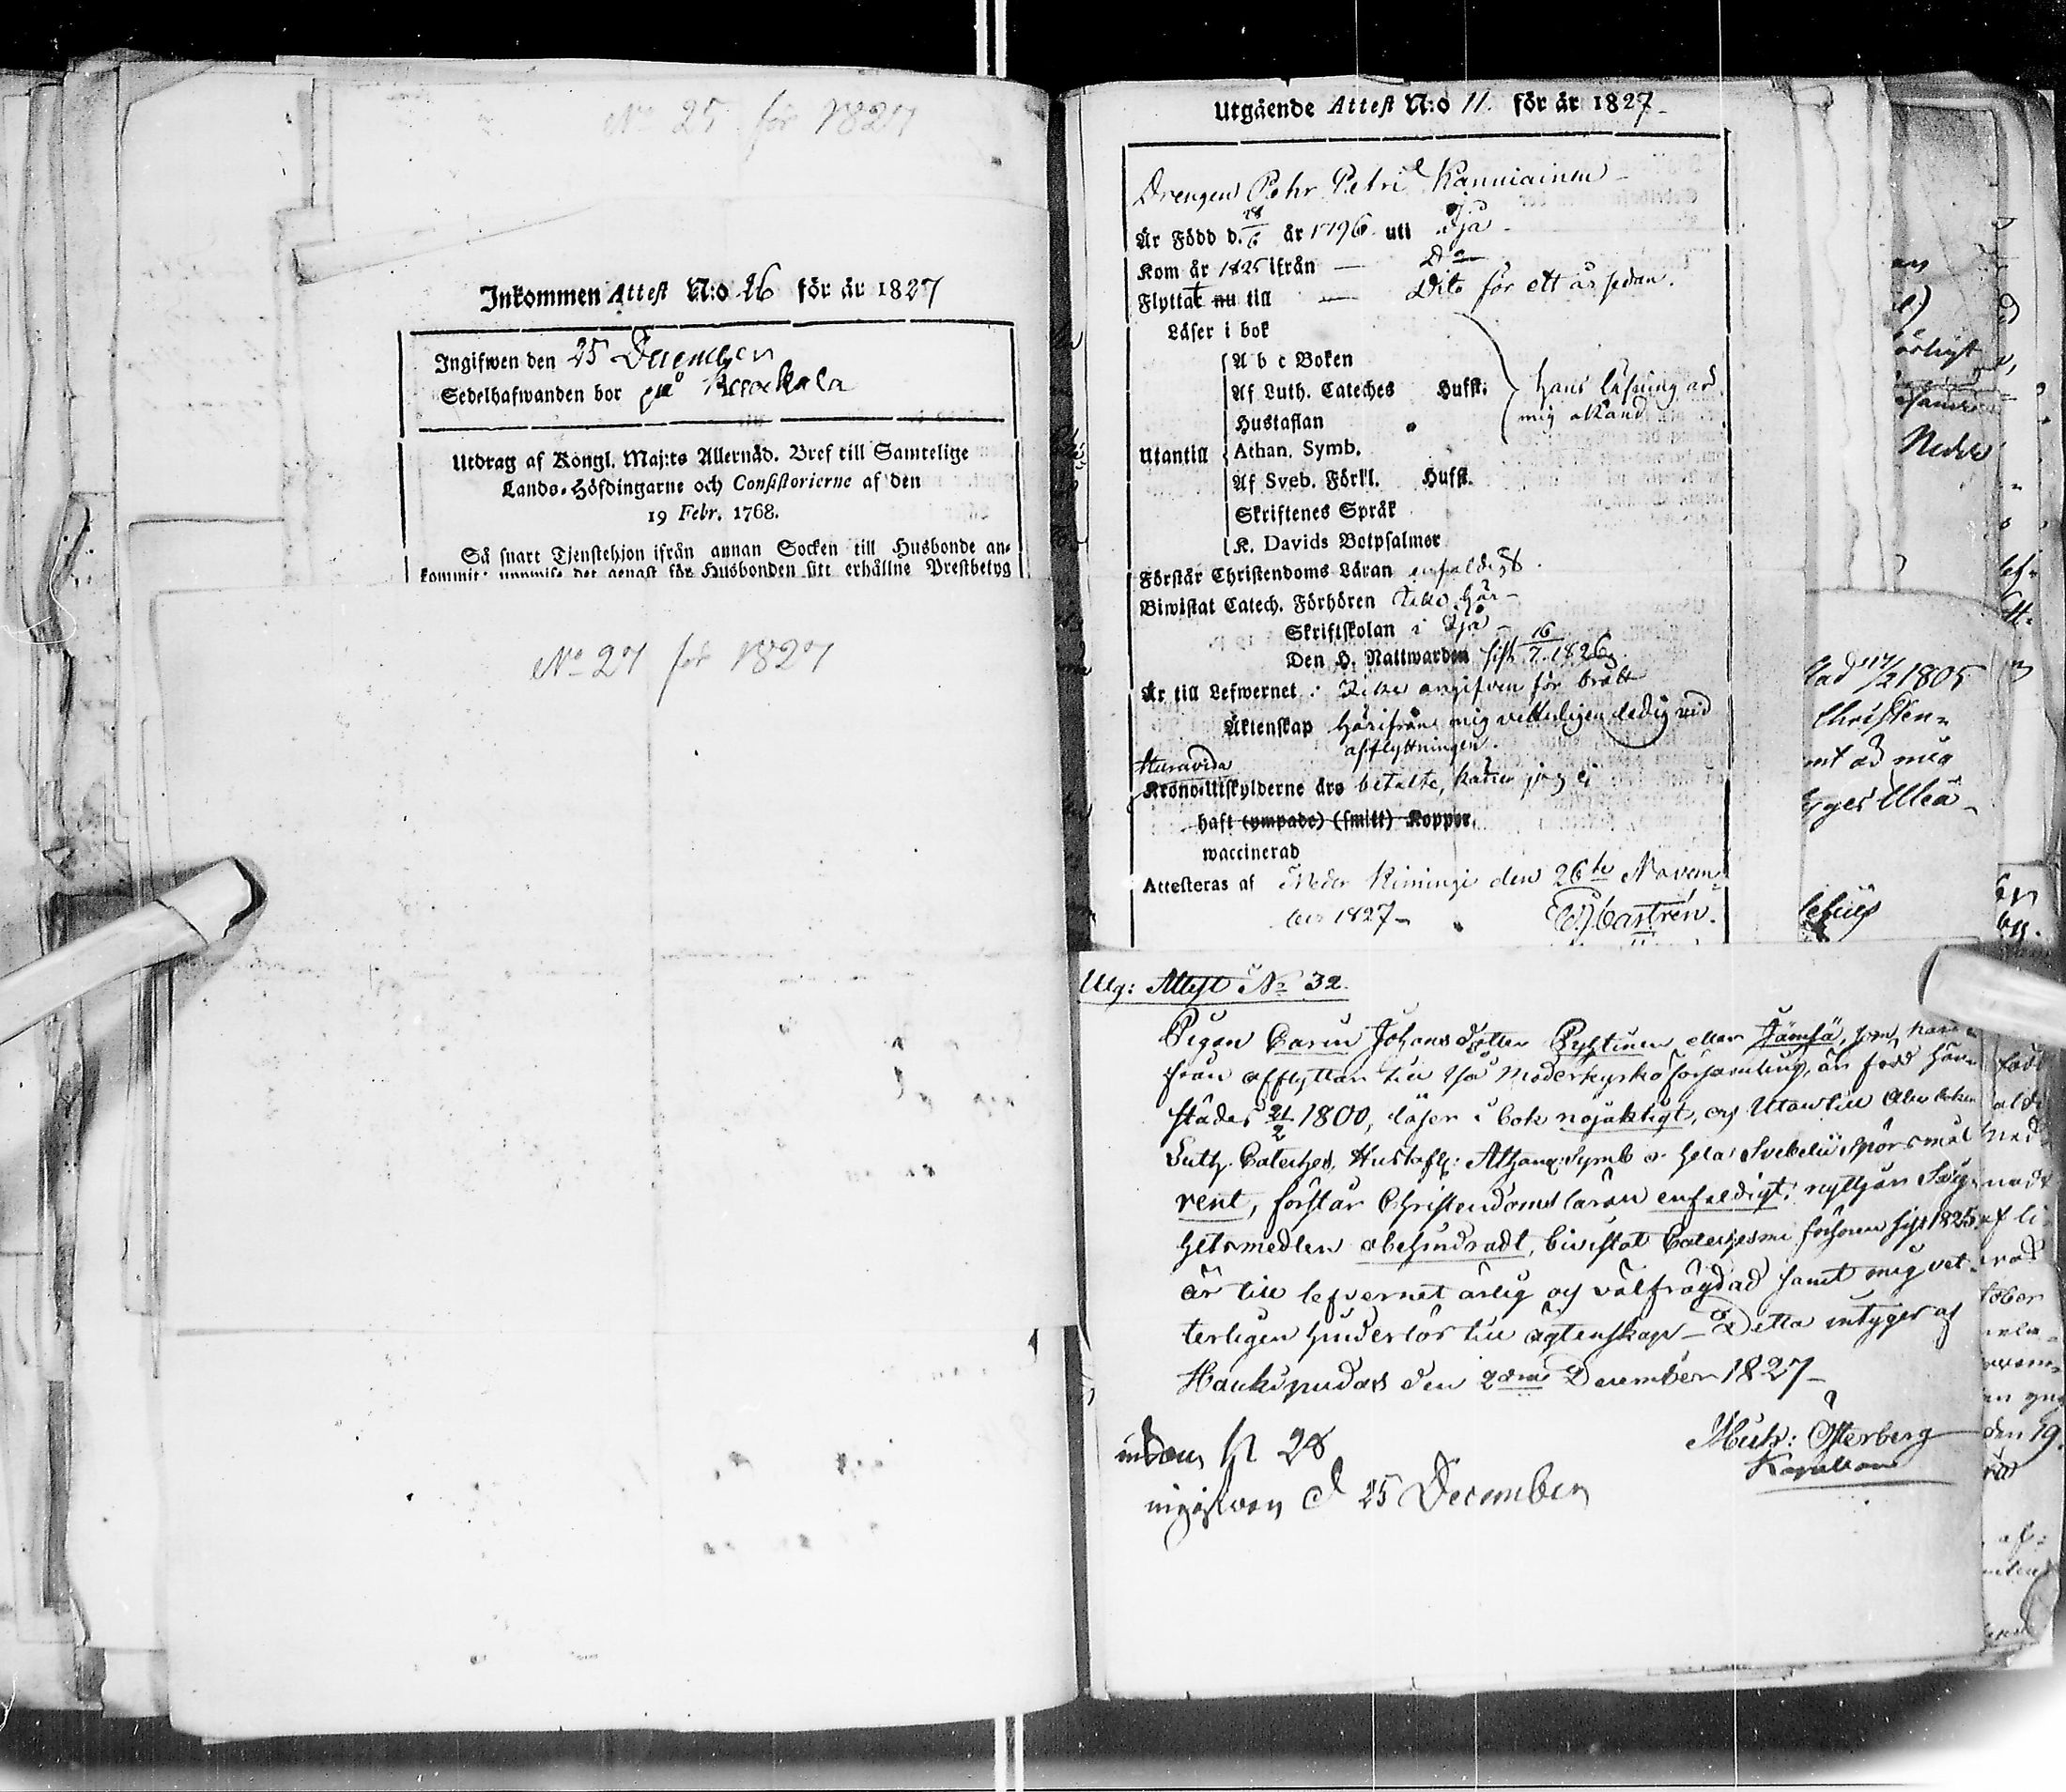 No 25 för 1827
Inkommen Attest N:o 26 för år 1827
Ingifwen den 25 December
Sedelhafwanden bor på
Utdrag af Kongl. Maj:ts Allernåd. Bref till Samtelige
Lands-Höfdingarne och Consistorierne af den
19 Febr. 1768.
Så snart Tjenstehjon ifrån annan Socken till Husbonde an-
kommit: uppwise det genast för Husbonden sitt erhållne Prestbetyg
No 27 för 1827
Utgående Attest N:o 11. för år 1827
Drengen Pehr Petri Kanniainen
Är Född d. 28/6 år 1796 uti Ijå
Kom år 1825 ifrån — Do
Flyttat nu till — Dito för ett år sedan.
Läser i bok
A b c Boken
Af Luth. Cateches Hufst. hans läsning är
Hustaflan mig okänd
Utantill Athan. Symb.
Af Sveb. Förkl. Hufst.
Skriftenes Språk
K. Davids Botpsalmer
Förstår Christendoms Läran enfaldigt.
Biwistat Catech. Förhören icke här
Skriftskolan i Ijå
Den H. Nattwarden sist 16/7 1826
Är till Lefwernet icke angifven för brott
Äktenskap härifrån mig vetterligen ledig vid
afflyttningen.
Huruvida
Krono-Utskylderne äro betalte, känner jag ej
haft (ympade) (smitt) Koppor.
waccinerad
Attesteras af Neder Kiminge den 26te Novem-
ber 1827 Castrén.
Utg: Attest No 32.
Pigan Carin Johansdotter Pyhtinen eller Jämsä, som
från afflyttar till Ijå Moderkyrko församling, är född här-
städes 21/2 1800, läser i bok nöjaktigt, och Utantill Abc boken
Luth. Cateches, Hustafl: Athan: Symb o hela Svebelii spörsmål
rent, förstår Christendomsläran enfaldigt, nyttjar Salig-
hetsmedlen obehindradt, bivistat Catechismi förhören sist 1825.
är till lefvernet ärlig och välfrägdad samt mig vet-
terligen hinderlös till ägtenskap — Detta intygas af
Haukipudas den 2dra December 1827
Österberg
Kapellan
inkom N 28
ingifven d 25 December
lad 17/2 1805
Christen-
mt ad mig
yges Uleå
den 19